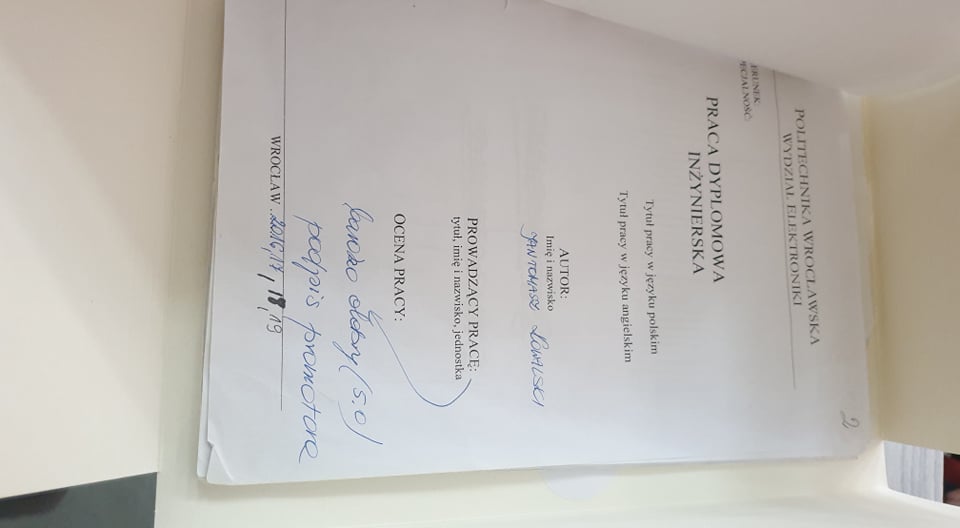 2
POLITECHNIKA WROCŁAWSKA
WYDZIAŁ ELEKTRONIKI
ERUNEK:
PECJALNOŚĆ:
PRACA DYPLOMOWA
INŻYNIERSKA
Tytuł pracy w języku polskim
Tytuł pracy w języku angielskim
AUTOR:
Imię i nazwisko
JAN TOMASZ KOWALSKI
PROWADZĄCY PRACĘ:
tytuł, imię i nazwisko, jednostka
OCENA PRACY:
bardzo dobry (5.0)
podpis promotora
WROCŁAW . 2016,17, 18, 19